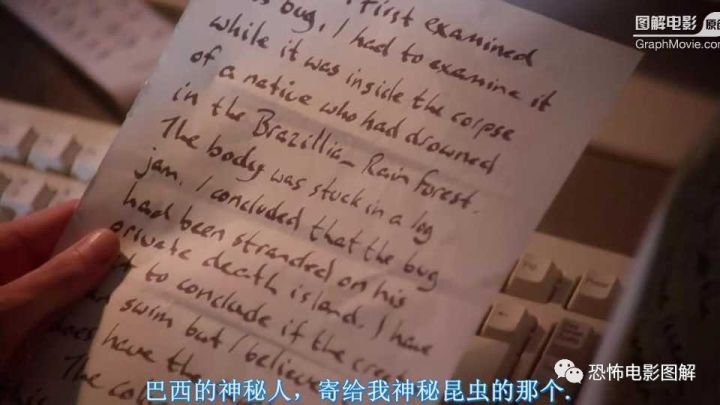 First examined
bug, I had to examine it
while it was inside the corpse
of a native who had drowned
in the Brazillian Rain forest.
The body was stuck in a log
jam. I concluded that the bug
had been stranded on his
private death island. I have
to conclude if the
swim but I believe
have the
The
图解电影
GraphMovie.com
恐怖电影图解
巴西的神秘人，寄给我神秘昆虫的那个.